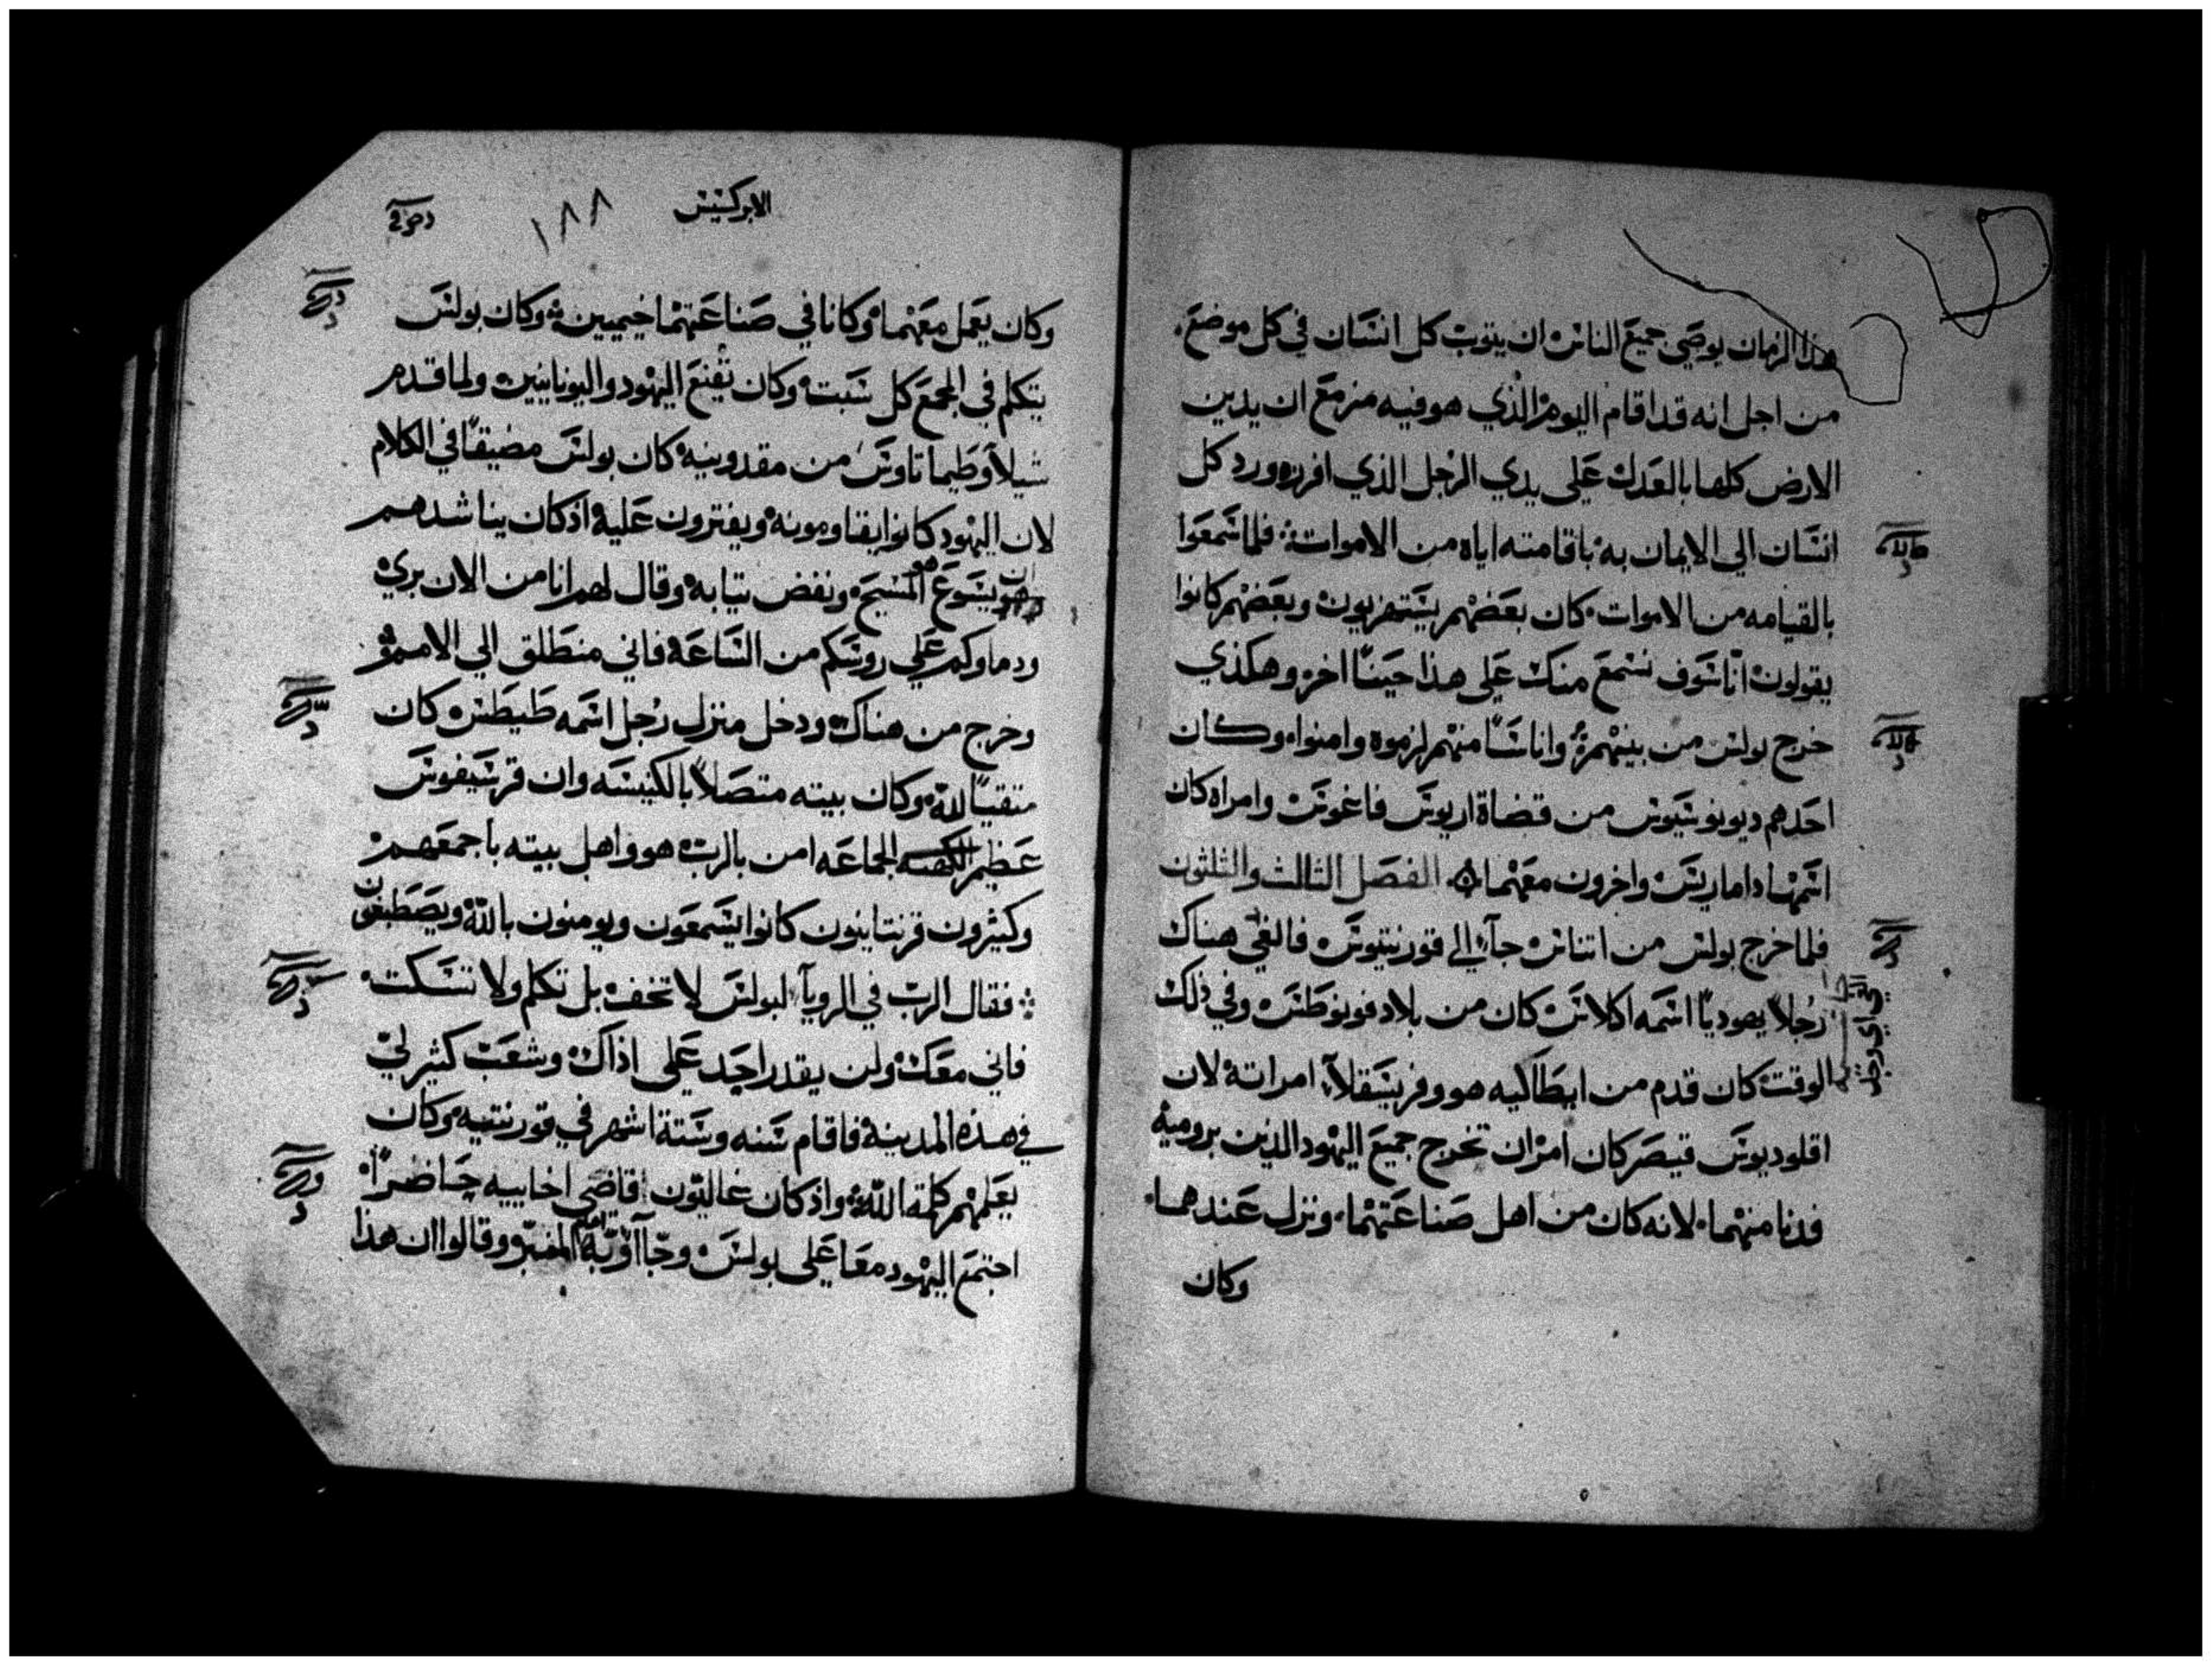 هذا الزمان يوصي جميع الناس ان يتوب كل انسان في كل موضع
من اجل انه قد اقام اليوم الذي هو فيه مزمع ان يدين
الارض كلها بالعدل علي يدي الرجل الذي افرزه ورد كل
انسان الي الايمان به باقامته اياه من الاموات فلما سمعوا
بالقيامه من الاموات كان بعضهم يستهزيون وبعضهم كانوا
يقولون انا سوف نسمع منك علي هذا حينا اخر وهكذي
خرج بولس من بينهم واناسا منهم لزموه وامنوا وكان
احدهم ديونوسيوس من قضاة اريوس فاغوس وامراه كان
اسمها داماريس واخرون معهما الفصل الثالث والثلثون
فلما خرج بولس من اتناس جآء الي قورنتيوس فالفي هناك
رجلا يهوديا اسمه اكلاس كان من بلاد فونوطس وفي ذلك
الوقت كان قدم من ايطاكيه هو وفريسقلآ امراته لان
اقلوديوس قيصر كان امر ان تخرج جميع اليهود الذين برومية
فدنا منهما لانه كان من اهل صناعتهما ونزل عندهما
وكان
الابركسيس
١٨٨
وكان يعمل معهما وكانا في صناعتهما خيميين وكان بولس
يتكلم في المجمع كل سبت وكان يقنع اليهود واليونانيين ولما قدم
شيلا وطيماتاوس من مقدونيه كان بولس مضيقا في الكلام
لان اليهود كانوا يقاومونه ويفترون عليه اذ كان يناشدهم
ان يسوع هو المسيح ونفض تيابه وقال لهم انا من الان بري
ودماوكم علي روسكم من الساعة فاني منطلق الي الامم
وخرج من هناك ودخل منزل رجل اسمه طيطس كان
متقيا لله وكان بيته متصلا بالكنيسه وان قرسيفوس
عظيم الجماعه امن بالرب هو واهل بيته باجمعهم
وكثيرون قرنتانيون كانوا يسمعون ويومنون بالله ويصطبغون
فقال الرب في الرويآ لبولس لا تخف بل تكلم ولا تسكت
فاني معك ولن يقدر احد علي اذاك وشعب كثير لي
في هذه المدينة فاقام سنه وستة اشهر في قورنتيه وكان
يعلمهم كلمة الله واذ كان غاليون قاضي اخاييه حاضرا
اجتمع اليهود معا علي بولس وجآاوا به امام المنبر وقالوا ان هذا